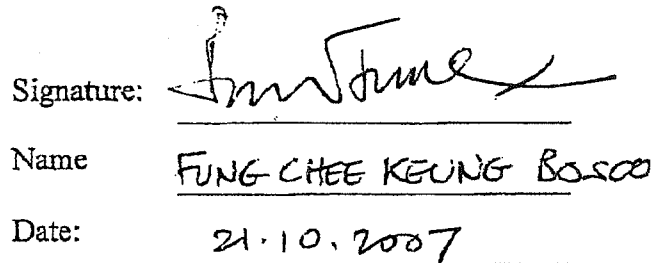 Signature:
Name FUNG CHEE KEUNG BOSCO
Date: 21.10.2007